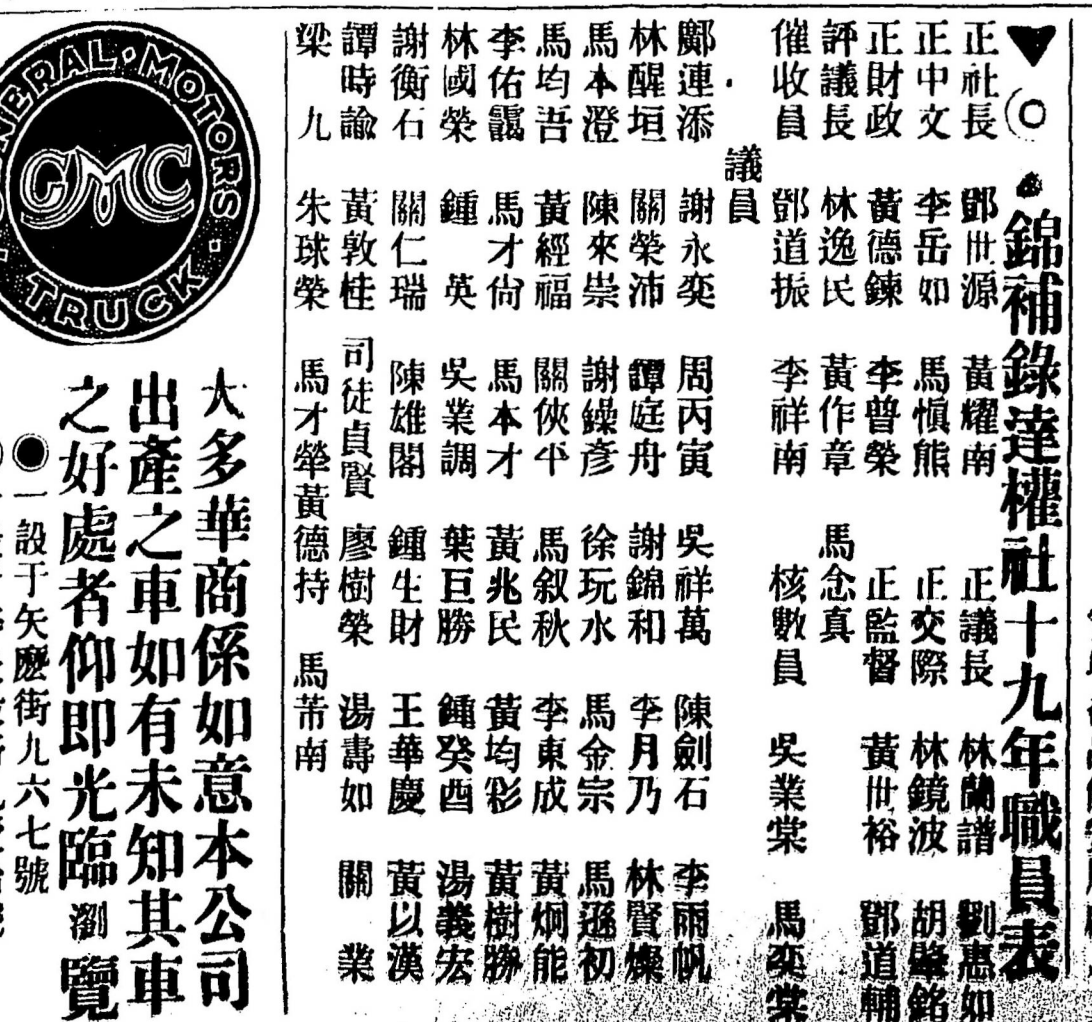 錦補錄達權社十九年職員表
正社長 鄧世源 黃耀南 正議長 林蘭譜 劉惠如
正中文 李岳如 馬愼熊 正交際 林鏡波 胡肇銘
正財政 黃德鍊 李曾榮 正監督 黃世裕 鄧道輔
評議長 林逸民 黃作章 馬念真
催收員 鄧道振 李祥南 核數員 吳業棠 馬奕棠
議員
鄺連添 謝永奕 周丙寅 吳祥萬 陳劍石 李雨帆
林醒垣 關榮沛 譚庭舟 謝錦和 李月乃 林賢燦
馬本澄 陳來崇 謝繰彥 徐玩水 馬金宗 馬遜初
馬均吾 黃經福 關俠平 馬叙秋 李東成 黃炯能
李佑靄 馬才尙 馬本才 黃兆民 黃均彩 黃樹勝
林國榮 鍾英 吳業調 葉巨勝 鍾癸酉 湯義宏
謝衡石 關仁瑞 陳雄閣 鍾生財 王華慶 黃以漢
譚時諭 黃敦桂 司徒貞賢 廖樹榮 湯壽如 關業
梁九 朱球榮 馬才犖 黃德持 馬芾南
GENERAL MOTORS
GMC
TRUCK
大多華商係如意本公司
出產之車如有未知其車
之好處者仰即光臨瀏覽
一設于矢麼街九六七號